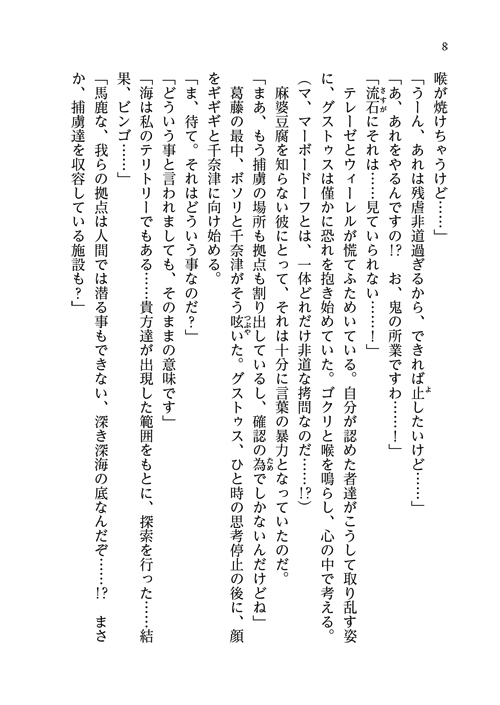 8
喉が焼けちゃうけど……」
「うーん、あれは残虐非道過ぎるから、できれば止したいけど……」
「あ、あれをやるんですの!? お、鬼の所業ですわ……！」
「流石にそれは……見ていられない……！」
テレーゼとウィーレルが慌てふためいている。自分が認めた者達がこうして取り乱す姿
に、グストゥスは僅かに恐れを抱き始めていた。ゴクリと喉を鳴らし、心の中で考える。
(マ、マーボードーフとは、一体どれだけ非道な拷問なのだ……!?)
麻婆豆腐を知らない彼にとって、それは十分に言葉の暴力となっていたのだ。
「まあ、もう捕虜の場所も拠点も割り出しているし、確認の為でしかないんだけどね」
葛藤の最中、ボソリと千奈津がそう呟いた。グストゥス、ひと時の思考停止の後に、顔
をギギギと千奈津に向け始める。
「ま、待て。それはどういう事なのだ？」
「どういう事と言われましても、そのままの意味です」
「海は私のテリトリーでもある……貴方達が出現した範囲をもとに、探索を行った……結
果、ビンゴ……」
「馬鹿な、我らの拠点は人間では潜る事もできない、深き深海の底なんだぞ……!? まさ
か、捕虜達を収容している施設も？」